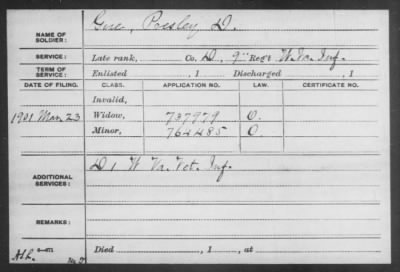 NAME OF SOLDIER: Gue, Possley D.
SERVICE: Late rank, Co. D, 9" Reg't W. Va. Inf.
TERM OF SERVICE: Enlisted , 1 Discharged , 1
DATE OF FILING. CLASS. APPLICATION NO. LAW. CERTIFICATE NO.
Invalid,
1901 Mar. 23 Widow, 737979 O.
Minor, 764485 O.
ADDITIONAL SERVICES: D 1 W Va. Vet. Inf.
REMARKS:
Died , 1 , at